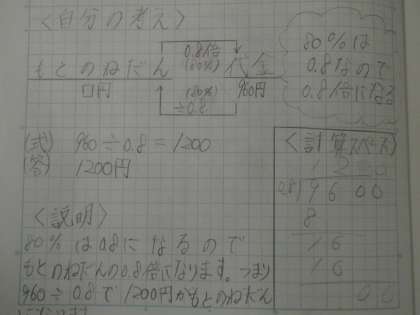 <自分の考え>
0.8倍
(80%)
もとのねだん 代金
□円 960円
(80%)
÷0.8
80%は
0.8なので
0.8倍になる
(式) 960÷0.8=1200
(答) 1200円
<計算スペース>
1 2 0
0.8)9 6 0 0
8
1 6
1 6
0 0
<説明>
80%は0.8になるので
もとのねだんの0.8倍になります。つまり
960÷0.8で1200円がもとのねだん